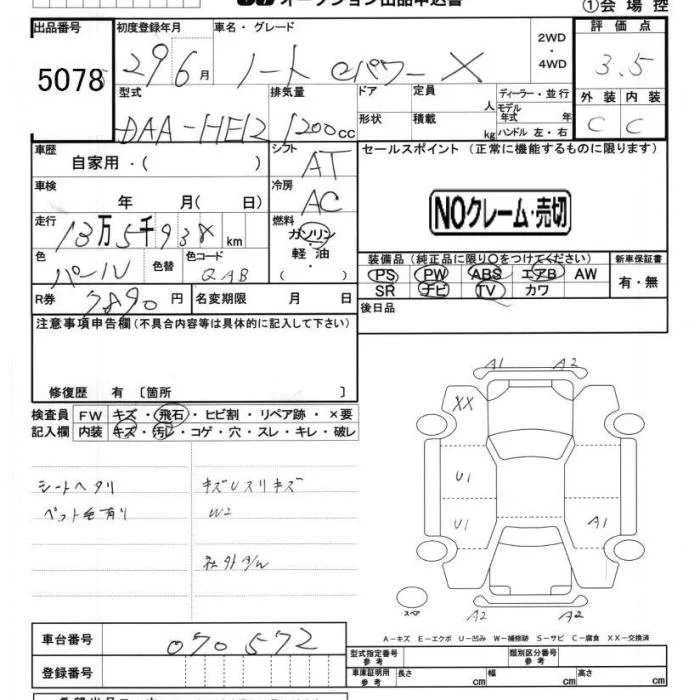 オークション出品申込書
①会場控
出品番号 初度登録年月 車名・グレード 2WD・4WD 評価点
5078 29 6月 ノート eパワー X 3.5
型式 排気量 ドア 定員 人 ディーラー・並行 外装 内装
モデル年式 年
DAA-HE12 1200cc 形状 積載 kg ハンドル 左・右 C C
車歴 自家用・( ) シフト AT セールスポイント (正常に機能するものに限ります)
車検 年 月( 日) 冷房 AC
NOクレーム・売切
走行 13万5千938km 燃料 ガソリン・軽油・( )
色 パール 色替 色コード QAB
装備品(純正品に限り○をつけてください) 新車保証書
PS PW ABS エアB AW 有・無
SR ナビ TV カワ
R券 7890円 名変期限 月 日
後日品
注意事項申告欄(不具合内容等は具体的に記入して下さい)
修復歴 有 〔箇所 〕
検査員 FW キズ・飛石・ヒビ割・リペア跡・×要
記入欄 内装 キズ・汚レ・コゲ・穴・スレ・キレ・破レ
シートヘタリ キズUスリキズ
ペット毛有り W2
社外タん
A1 A2
XX
U1
U1 A1
スペア
A2 A2
A-キズ E-エクボ U-凹み W-補修跡 S-サビ C-腐食 XX-交換済
車台番号 070572
登録番号
型式指定番号 参考 類別区分番号 参考
車庫証明用 参考 長さ cm 幅 cm 高さ cm